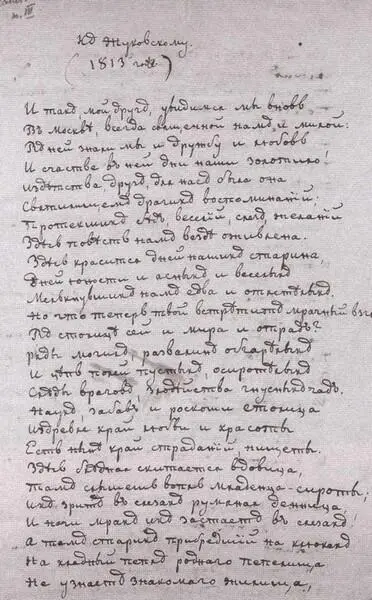 Къ Жуковскому.
(1813 года)
И такъ, мой другъ, увидимся мы вновь
Въ Москвѣ, всегда священной намъ и милой!
Въ ней знали мы и дружбу и любовь
И счастье въ ней дни наши золотило.
Изъ дѣтства, другъ, для насъ была она
Святилищемъ драгихъ воспоминаній;
Протекшихъ бѣдъ, веселій, слезъ, желаній
Здѣсь повѣсть намъ вездѣ оживлена.
Здѣсь красится дней нашихъ старина,
Дней юности и ясныхъ и веселыхъ
Мелькнувшихъ намъ едва и отлетѣлыхъ
Но что теперь твой встрѣтитъ мрачный взглядъ
Въ столицѣ сей и мира и отрадъ?
Ряды могилъ, развалинъ обгорѣлыхъ
И цѣпь полей пустыхъ, осиротѣлыхъ
Слѣды враговъ злодѣйства гнусныхъ чадъ
Наукъ, забавъ и роскоши столица
Издревле край любви и красоты
Есть нынѣ край страданій, нищеты.
Здѣсь бѣдная скитается вдовица,
Тамъ слышенъ вопль младенца-сироты;
Ихъ зритъ въ слезахъ румяная денница
И ночи мракъ ихъ застаетъ въ слезахъ!
А тамъ старикъ прибредшій на клюкахъ
На хладный пепелъ роднаго пепелища
Не узнаетъ знакомаго жилища,